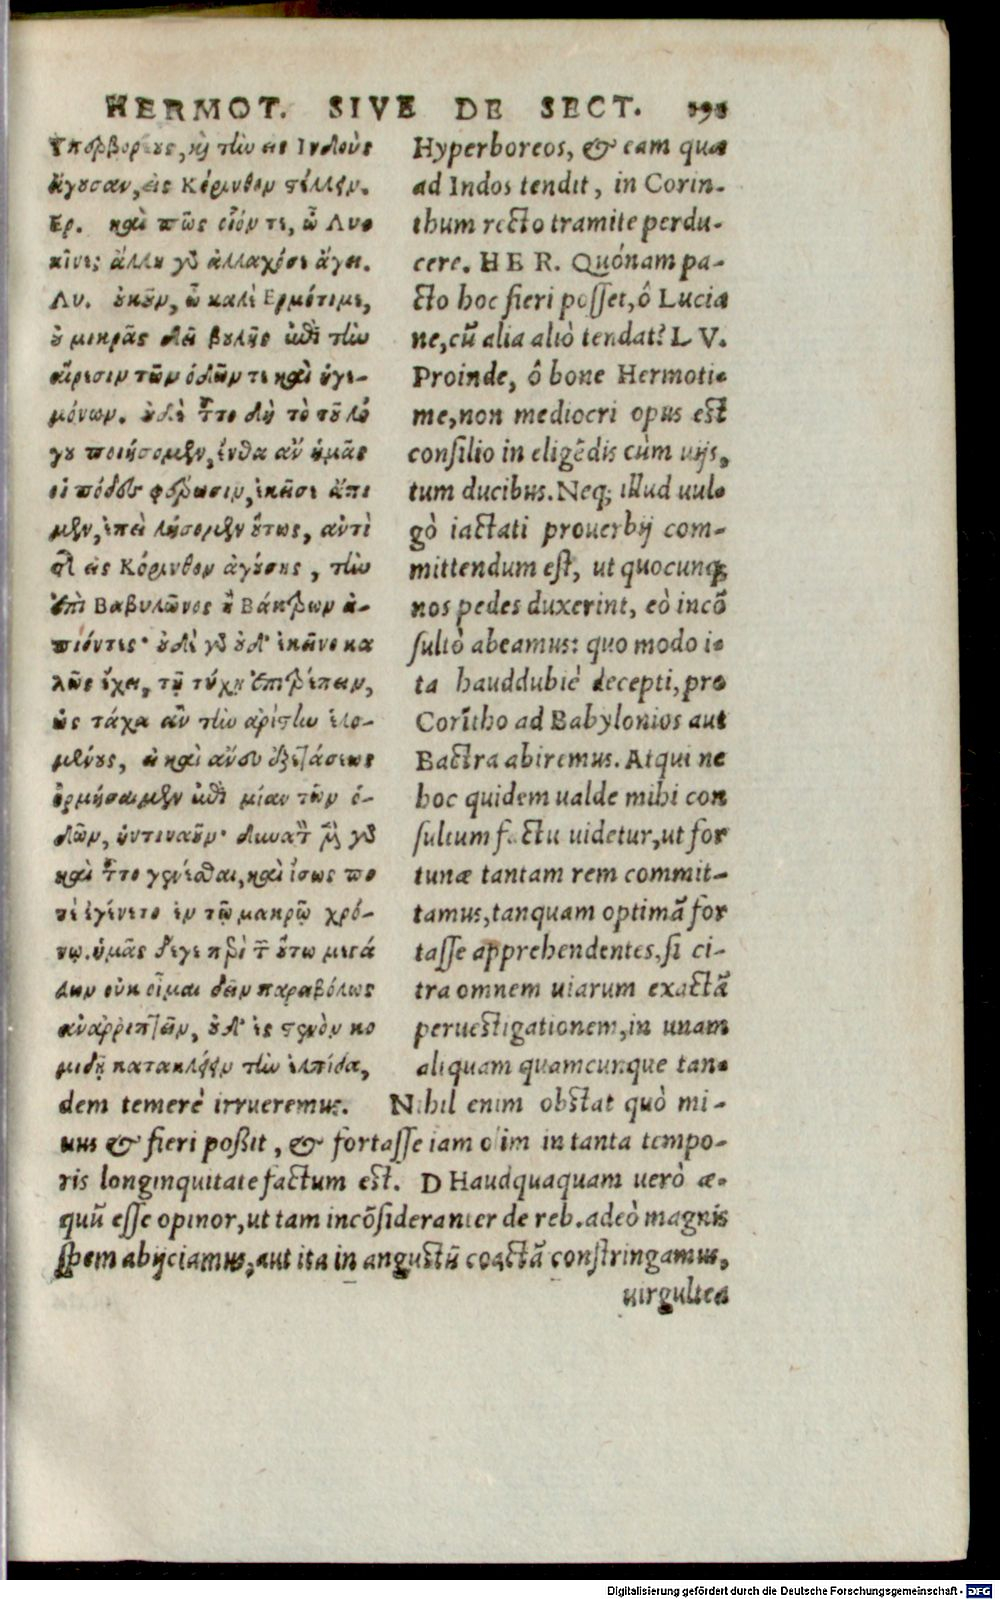 HERMOT. SIVE DE SECT.
Ὑπερβορέους, καὶ τὴν εἰς Ἰνδοὺς
ἄγουσαν, εἰς Κόρινθον στέλλειν.
Ερ. καὶ πῶς οἷόν τε, ὦ Λυ
κῖνε; ἄλλη γὸ ἀλλαχόσε ἄγει.
Λυ. οὐκοῦν, ὦ καλὲ Ερμότιμε,
οὐ μικρᾶς δεῖ βουλῆς ἐπὶ τὴν
αἵρεσιν τῶν ὁδῶν τε καὶ ἡγε-
μόνων. οὐδὲ τοῦτο δὴ τὸ τοῦ λό
γου ποιήσομεν, ἔνθα ἂν ἡμᾶς
οἱ πόδες φέρωσιν, ἐκεῖσε ἄπι
μεν, ἐπεὶ λήσομεν οὕτως, ἀντὶ
τῆς εἰς Κόρινθον ἀγούσης, τὴν
ἐπὶ Βαβυλῶνος ἢ Βάκτρων ἀ-
πιόντες· οὐδὲ γὸ οὐδ' ἐκεῖνο κα
λῶς ἔχει, τῇ τύχῃ ἐπιτρέπειν,
ὡς τάχα ἂν τὴν ἀρίστην ἑλο-
μένους, εἰ καὶ ἄνευ ἐξετάσεως
ὁρμήσαιμεν ἐπὶ μίαν τῶν ὁ-
δῶν, ἡντιναοῦν· δυνατὸν μὲν γὸ
καὶ τοῦτο γενέσθαι, καὶ ἴσως πο
τὲ ἐγένετο ἐν τῷ μακρῷ χρό-
νῳ. ἡμᾶς δέ γε περὶ τῶν οὕτω μεγά
λων οὐκ οἶμαι δεῖν παραβόλως
ἀναρριπτεῖν, οὐδ' ἐς στενὸν κο
μιδῇ κατακλείειν τὴν ἐλπίδα,
Hyperboreos, & eam quæ
ad Indos tendit, in Corin-
thum recto tramite perdu-
cere. HER. Quónam pa-
cto hoc fieri posset, ô Lucia
ne, cũ alia aliò tendat? LV.
Proinde, ô bone Hermoti-
me, non mediocri opus est
consilio in eligẽdis cùm uijs,
tum ducibus. Neq; illud uul-
gò iactati prouerbij com-
mittendum est, ut quocunq;
nos pedes duxerint, eò incõ
sultò abeamus: quo modo i-
ta hauddubiè decepti, pro
Corĩtho ad Babylonios aut
Bactra abiremus. Atqui ne
hoc quidem ualde mihi con
sultum factu uidetur, ut for
tunæ tantam rem commit-
tamus, tanquam optimã for
tasse apprehendentes, si ci-
tra omnem uiarum exactã
peruestigationem, in unam
aliquam quamcunque tan-
dem temerè irrueremus. Nihil enim obstat quò mi-
nus & fieri poßit, & fortasse iam olim in tanta tempo-
ris longinquitate factum est. D Haudquaquam uerò æ-
quũ esse opinor, ut tam incõsideranter de reb. adeò magnis
spem abijciamus, aut ita in angustũ coactã constringamus,
uirgultea
Digitalisierung gefördert durch die Deutsche Forschungsgemeinschaft - DFG